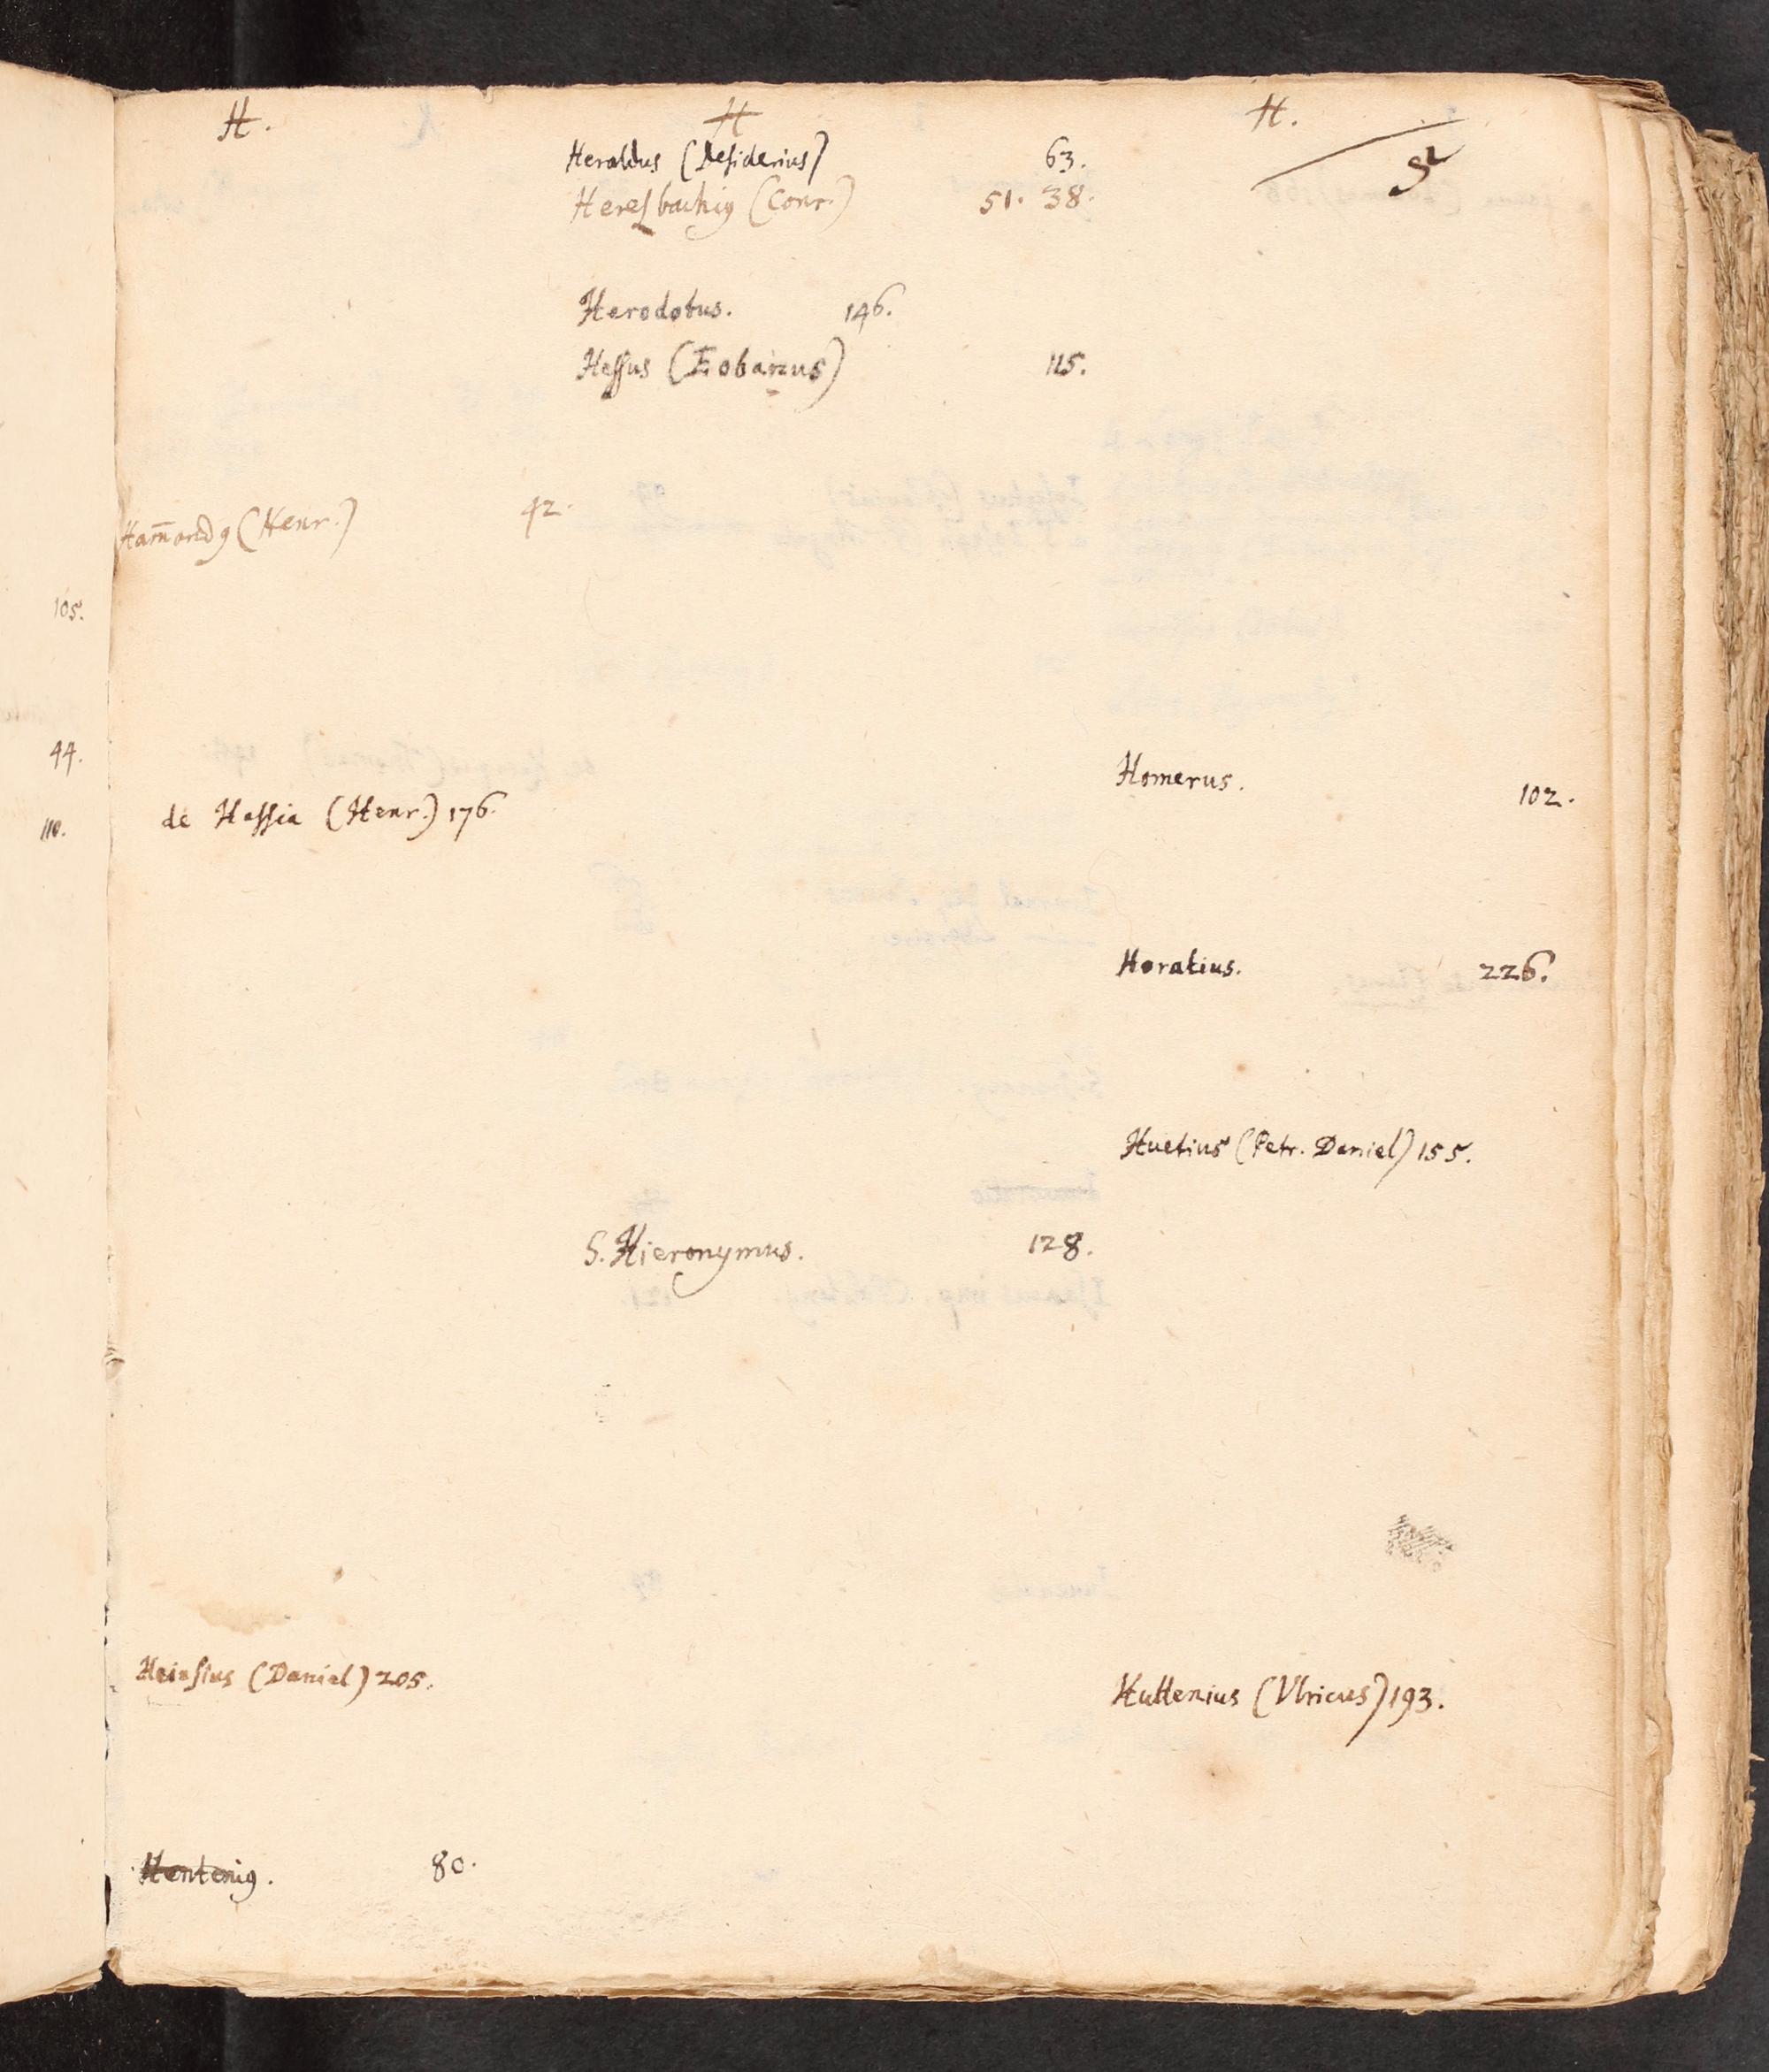 105.
44.
110.
H.
Ham̄ondꝯ (Henr.) 42.
de Hassia (Henr.) 176.
Heinsius (Daniel) 205.
Henteniꝯ. 80.
H
Heraldus (Desiderius) 63.
Heresbachiꝯ (Conr.) 51. 38.
Herodotus. 146.
Hessus (Eobanus) 115.
S. Hieronymus. 128.
H.
Homerus. 102.
Horatius. 226.
Huetius (Petr. Daniel) 155.
Huttenius (Ulricus) 193.